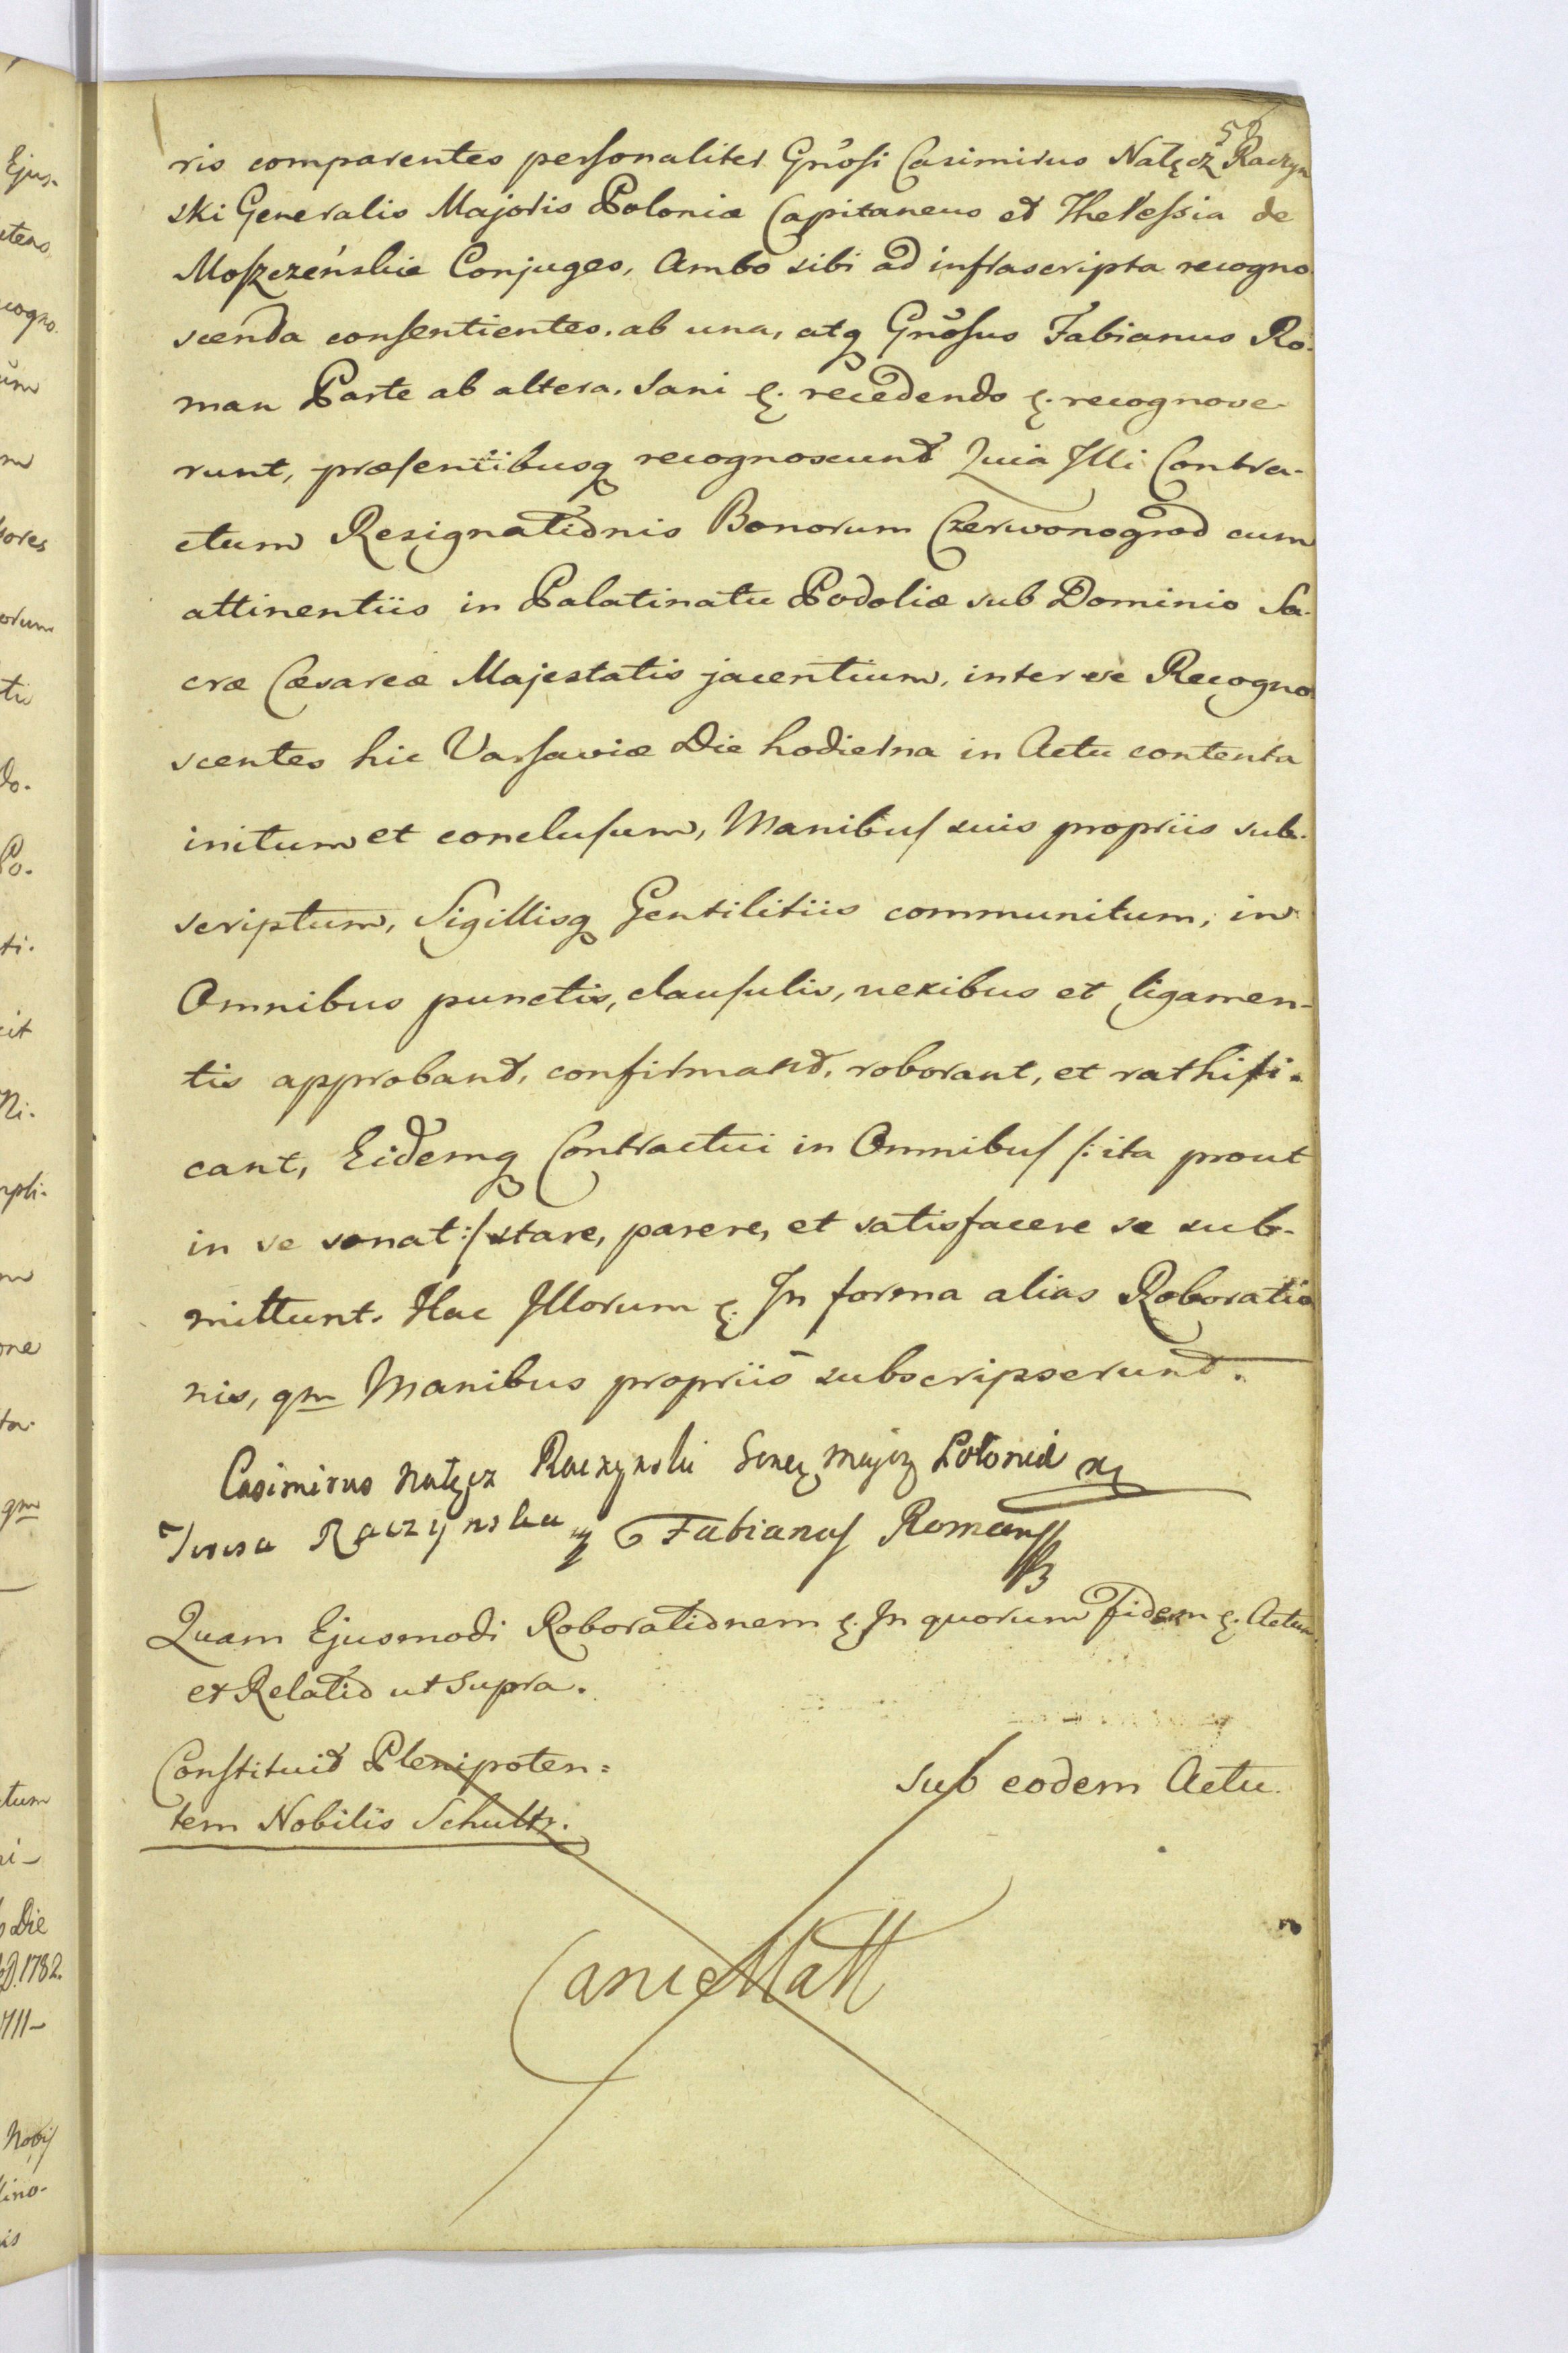 53
ris comparentes personaliter Gnosi Casimirus Nałęcz Raczyn
ski Generalis Majoris Poloniæ Capitaneus et Theressia de
Moszczeńskie Conjuges, Ambo sibi ad infrascripta recogno
scenda consentientes, ab una, atq Gnosus Fabianus Ro-
man Parte ab altera. Sani &. recedendo &. recognove-
runt, præsentibusq recognoscunt Quia Illi Contra-
ctum Resignationis Bonorum Czerwonogrod cum
attinentiis in Palatinatu Podoliæ sub Dominio Sa-
cræ Cæsareæ Majestatis jacentium, inter se Recogno
scentes hic Varsaviæ Die hodierna in Actu contenta
initum et conclusum, Manibus suis propriis sub-
scriptum, Sigillisq Gentilitiis communitum, in
Omnibus punctis, clausulis, nexibus et ligamen-
tis approbant, confirmant, roborant, et rathifi-
cant, Eidemq Contractui in Omnibus /: ita prout
in se sonat :/ stare, parere, et satisfacere se sub-
mittunt. Hac Illorum &. In forma alias Roboratio
nis, qm Manibus propriis subscripserunt.
Casimirus Nałęcz Raczynski Gene Majo Poloniæ
Teresa Raczynska Fabianus Roman
Quam Ejusmodi Roborationem &. In quorum Fidem &. Actum
et Relatio ut Supra.
Constituit Plenipoten=
tem Nobilis Schultz.
Sub eodem Actu.
Ejus-
1782.